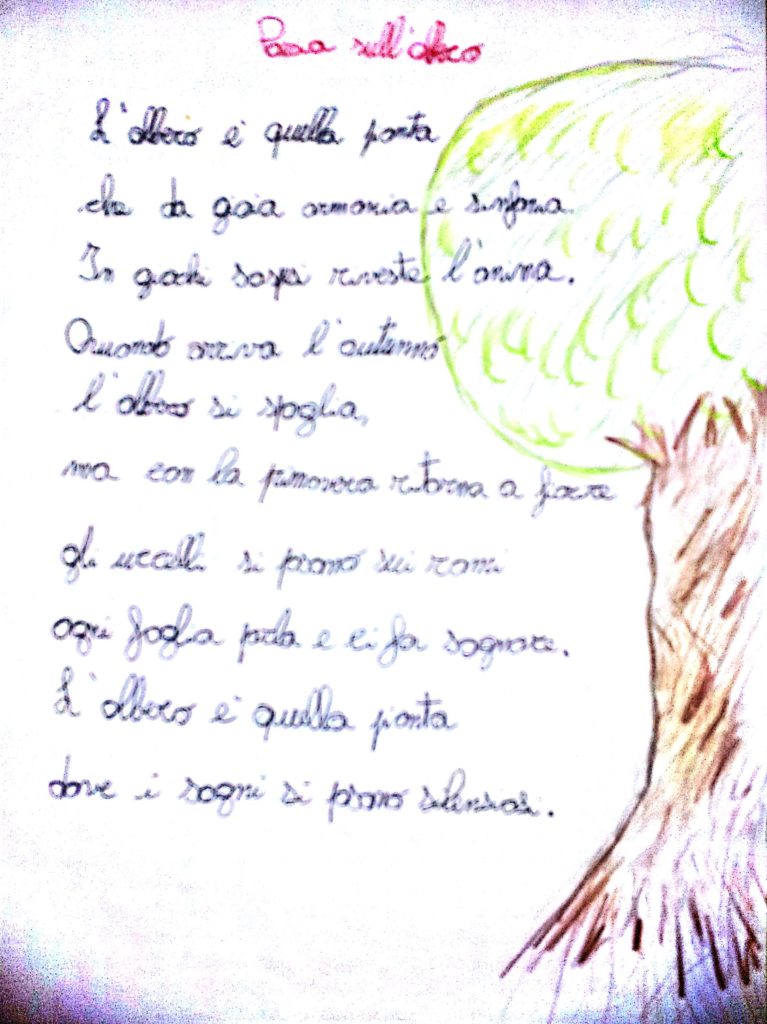 Poesia sull'albero
L'albero è quella pianta
che da gioia armonia e sinfonia
In giochi sospesi riveste l'anima.
Quando arriva l'autunno
l'albero si spoglia,
ma con la primavera ritorna a fiorire
gli uccelli si posano sui rami
ogni foglia parla e ci fa sognare.
L'albero è quella pianta
dove i sogni si posano silenziosi.